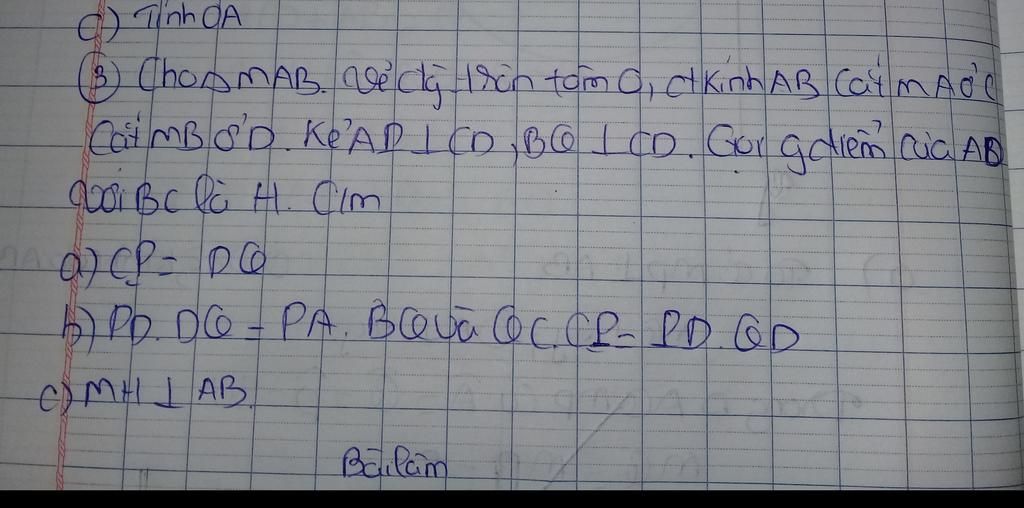 c) Tính OA
③ Cho Δ MAB. Vẽ đg tròn tâm O, đkính AB cắt MA ở C
Cắt MB ở D. Kẻ AP ⊥ CD, BQ ⊥ CD. Gọi gđiểm của AD
với BC là H. C/m
a) CP = DQ
b) PD. DQ = PA. BQ và QC. CP = PD. QD
c) MH ⊥ AB.
Bài làm